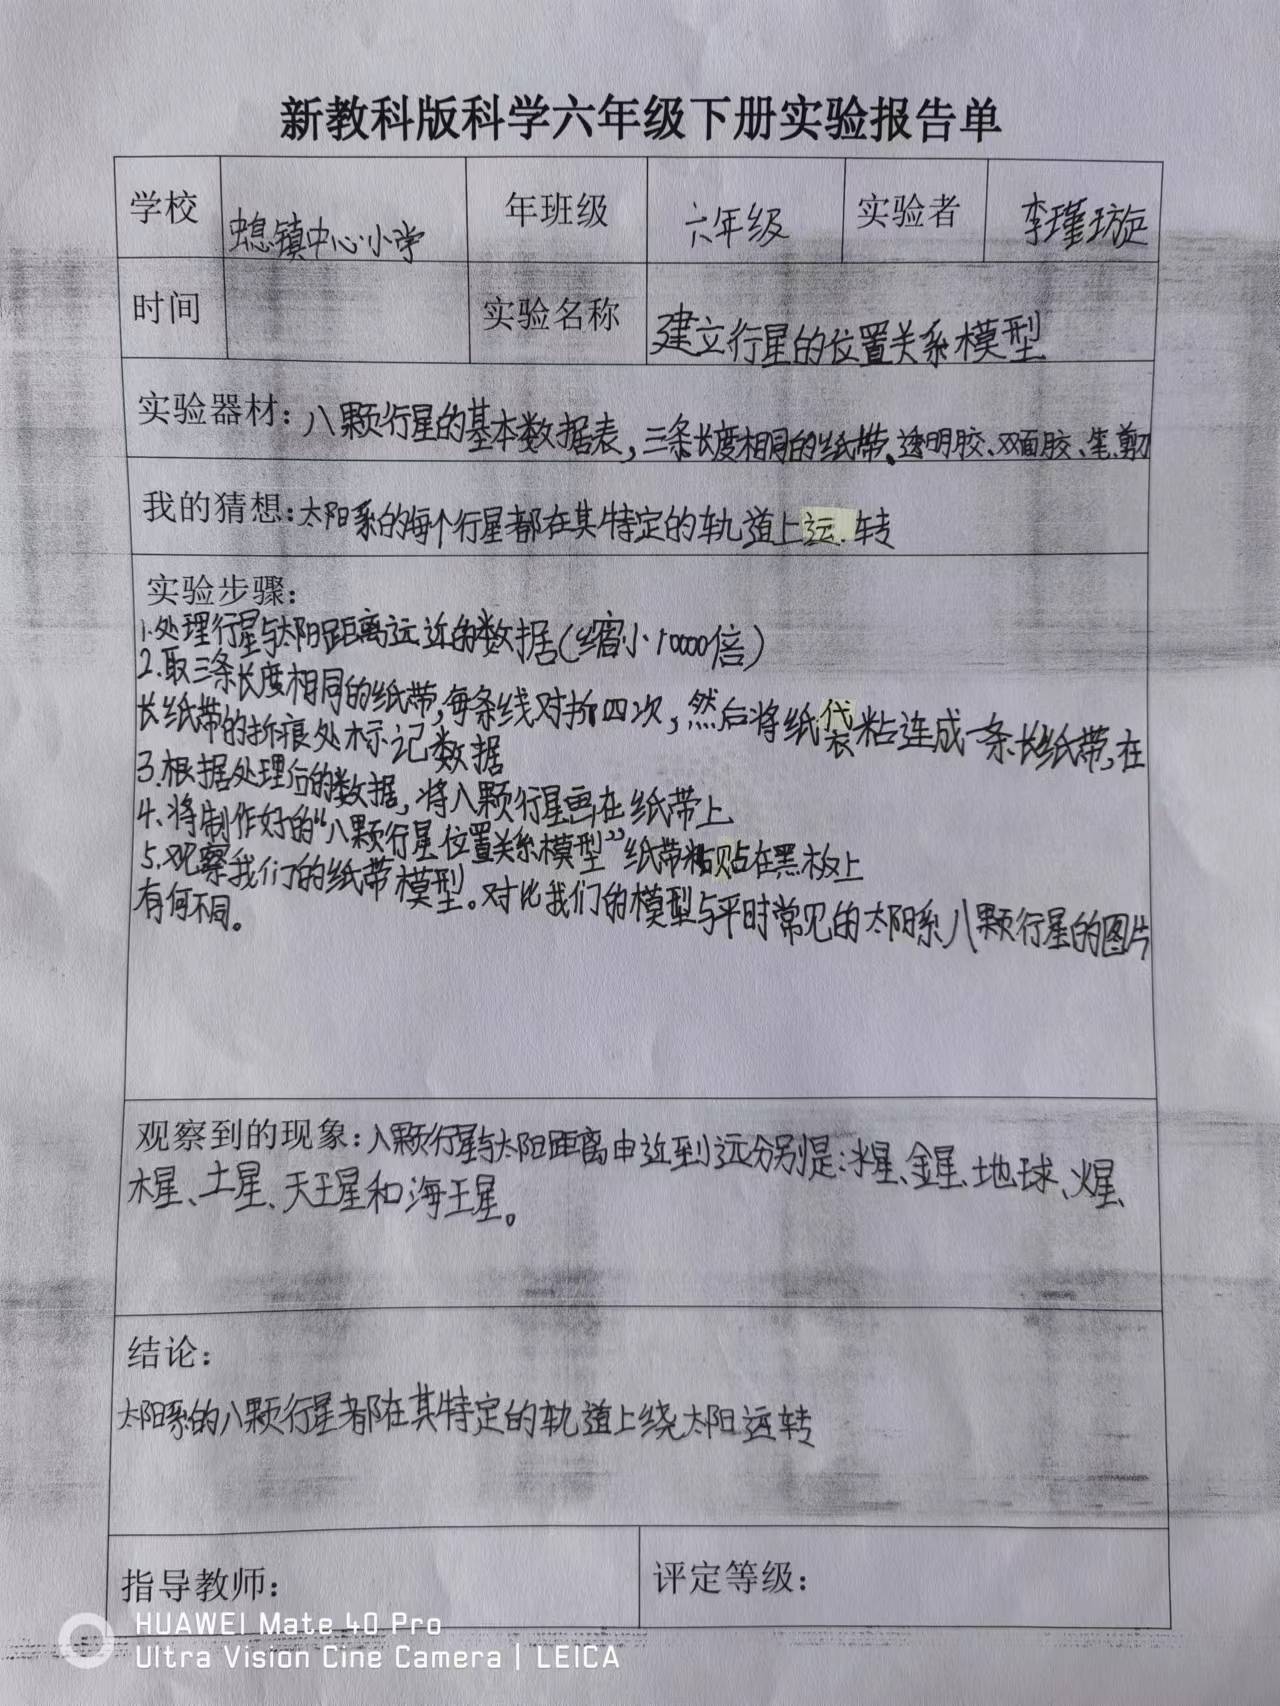 新教科版科学六年级下册实验报告单
学校 蟌镇中心小学 年班级 六年级 实验者 李瑾璇
时间 实验名称 建立行星的位置关系模型
实验器材：八颗行星的基本数据表，三条长度相同的纸带、透明胶、双面胶、笔、剪刀
我的猜想：太阳系的每个行星都在其特定的轨道上运转
实验步骤：
1.处理行星与太阳距离远近的数据(缩小10000倍)
2.取三条长度相同的纸带，每条线对折四次，然后将纸袋粘连成一条长纸带，在
长纸带的折痕处标记数据
3.根据处理后的数据，将八颗行星画在纸带上
4、将制作好的“八颗行星位置关系模型”纸带粘贴在黑板上
5.观察我们的纸带模型。对比我们的模型与平时常见的太阳系八颗行星的图片
有何不同。
观察到的现象：八颗行星与太阳距离由近到远分别是：水星、金星、地球、火星、
木星、土星、天王星和海王星。
结论：
太阳系的八颗行星都在其特定的轨道上绕太阳运转
指导教师： 评定等级：
HUAWEI Mate 40 Pro
Ultra Vision Cine Camera | LEICA